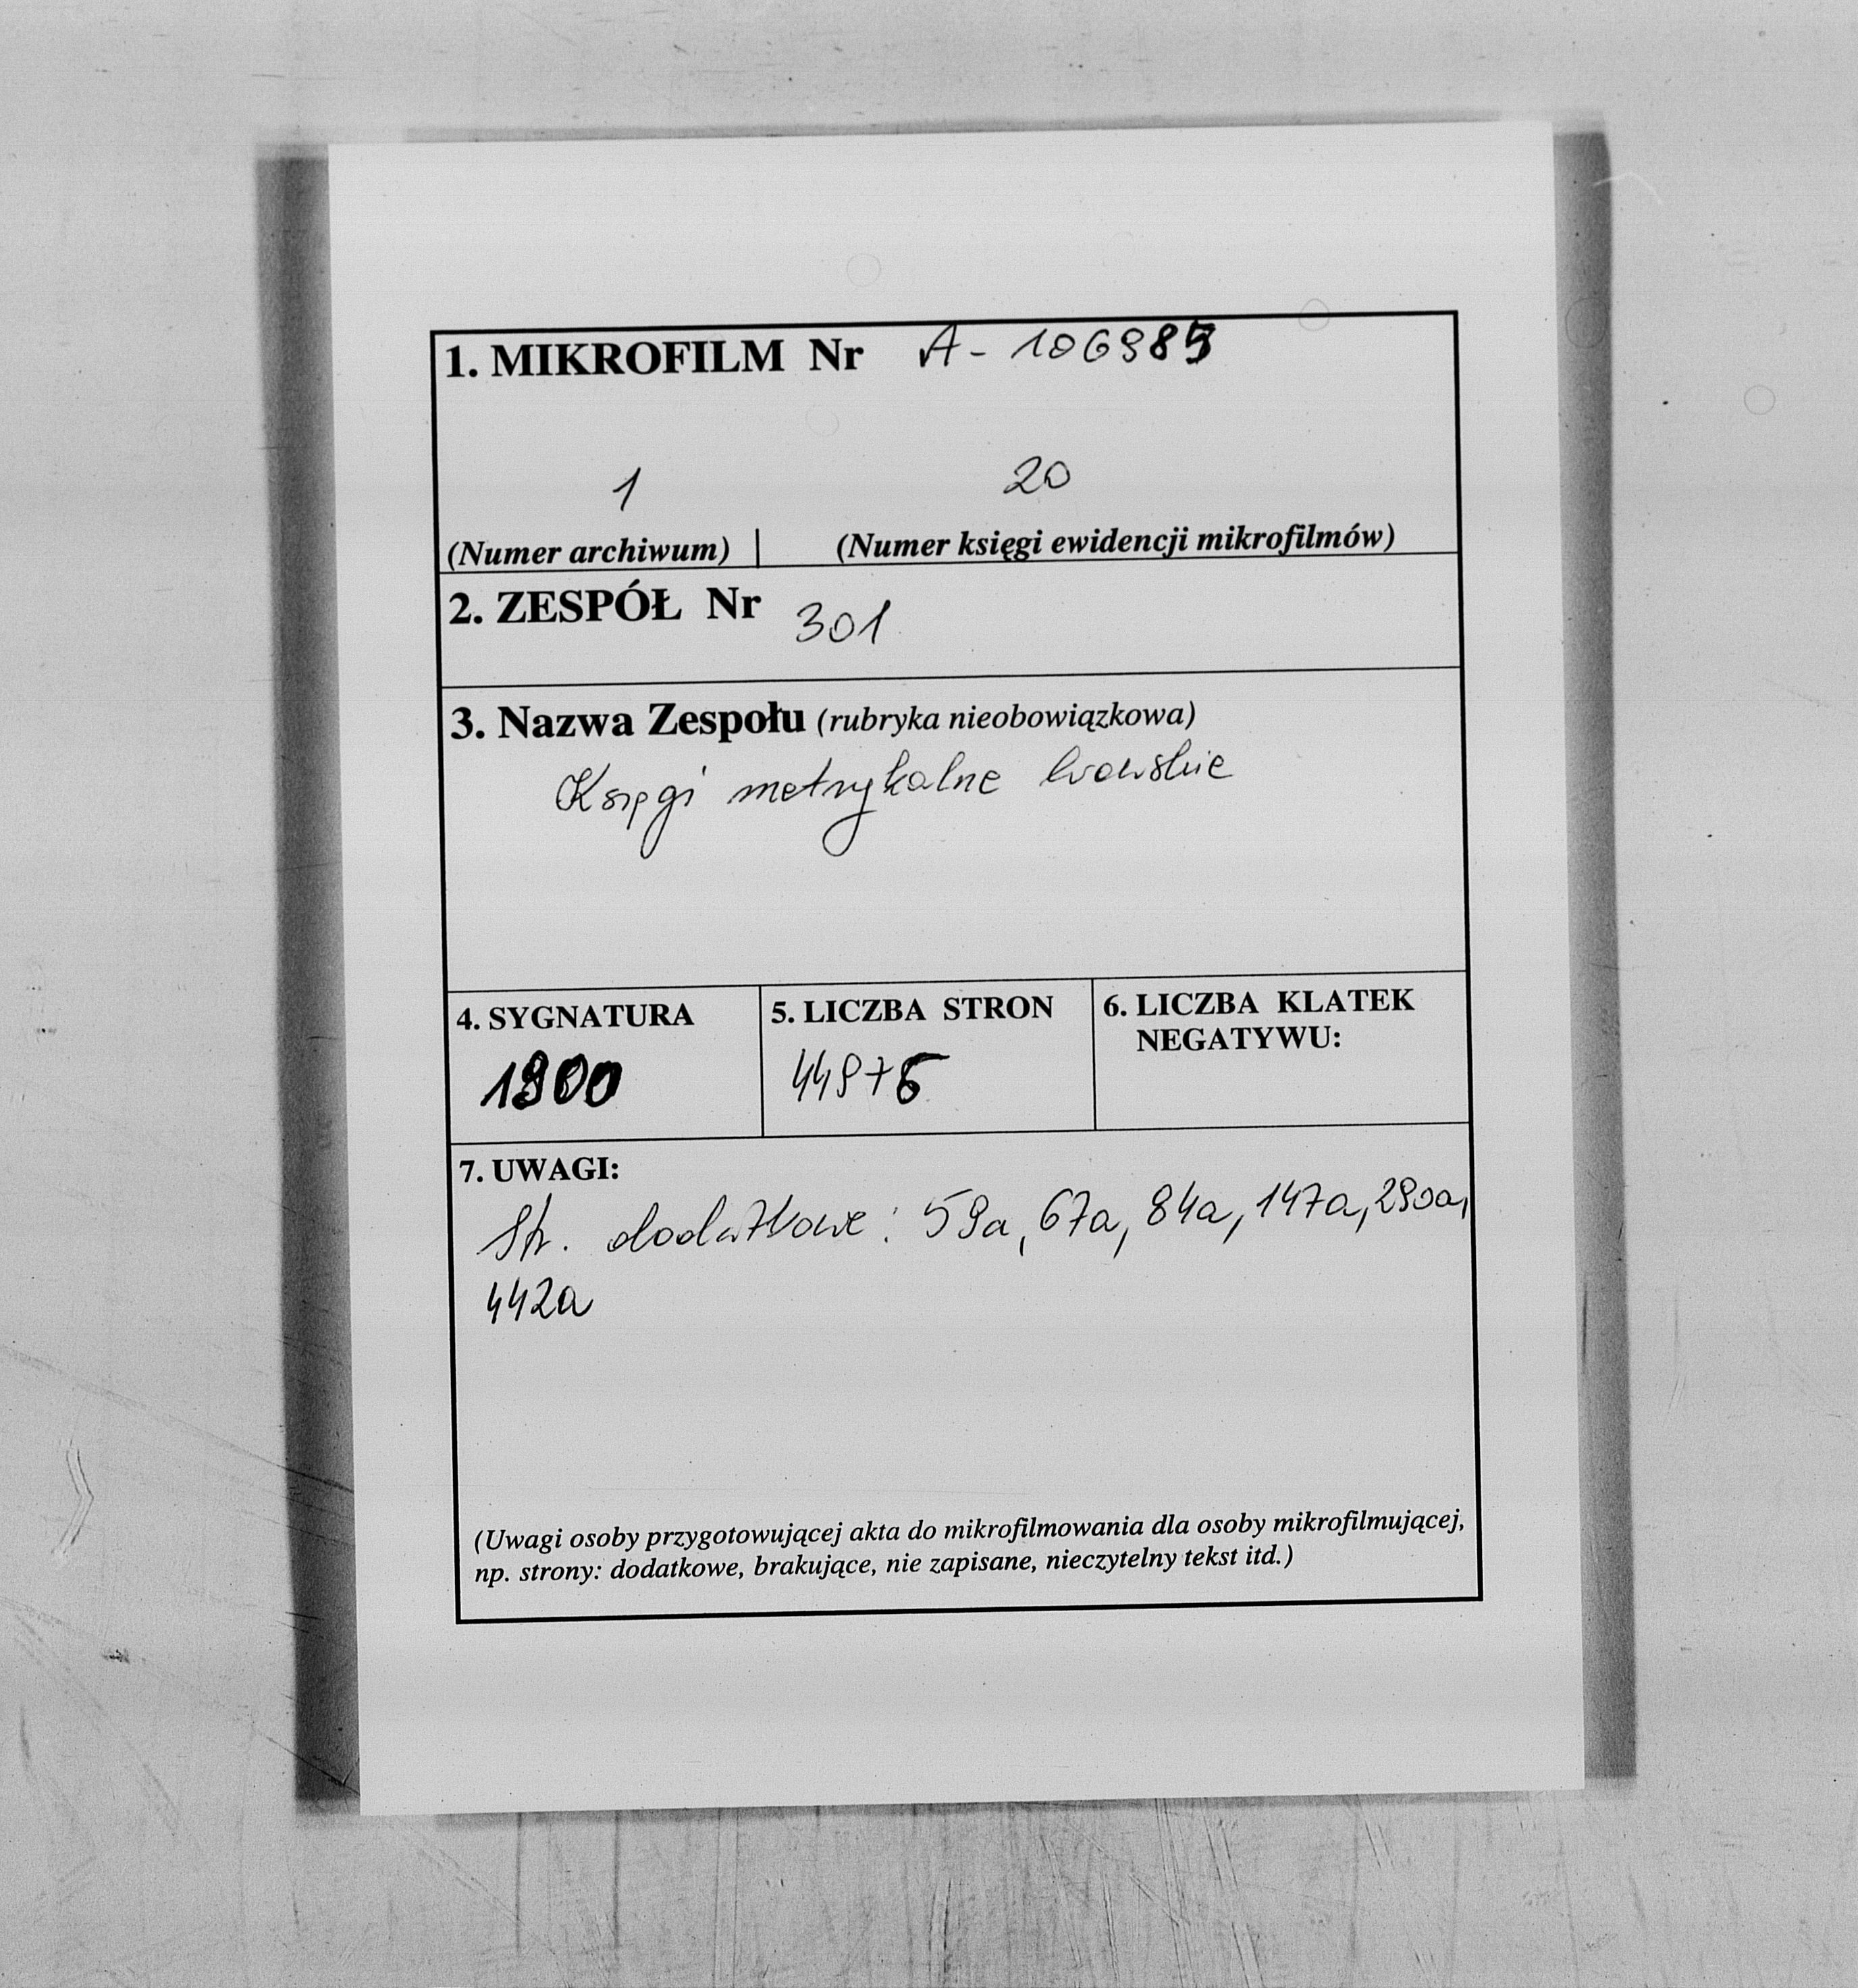 1. MIKROFILM Nr A - 106985
1 20
(Numer archiwum) | (Numer księgi ewidencji mikrofilmów)
2. ZESPÓŁ Nr 301
3. Nazwa Zespołu (rubryka nieobowiązkowa)
Księgi metrykalne lwowskie
4. SYGNATURA 5. LICZBA STRON 6. LICZBA KLATEK
NEGATYWU:
1900 449+6
7. UWAGI:
Str. dodatkowe: 59a, 67a, 84a, 147a, 290a,
442a
(Uwagi osoby przygotowującej akta do mikrofilmowania dla osoby mikrofilmującej,
np. strony: dodatkowe, brakujące, nie zapisane, nieczytelny tekst itd.)